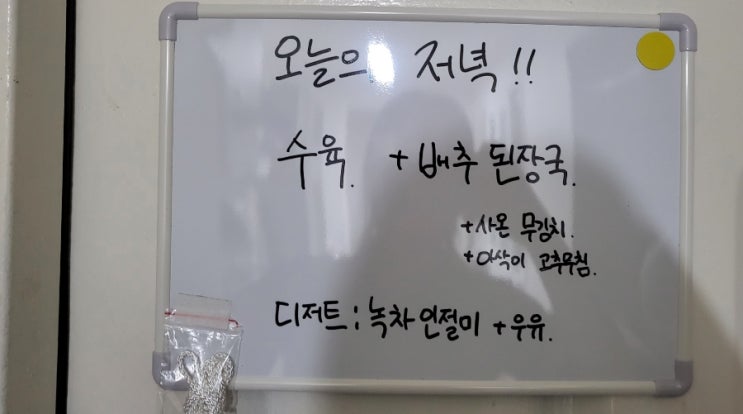 오늘의 저녁!!
수육. + 배추 된장국.
+사온 무김치.
+아삭이 고추무침.
디저트: 녹차 인절미 + 우유.